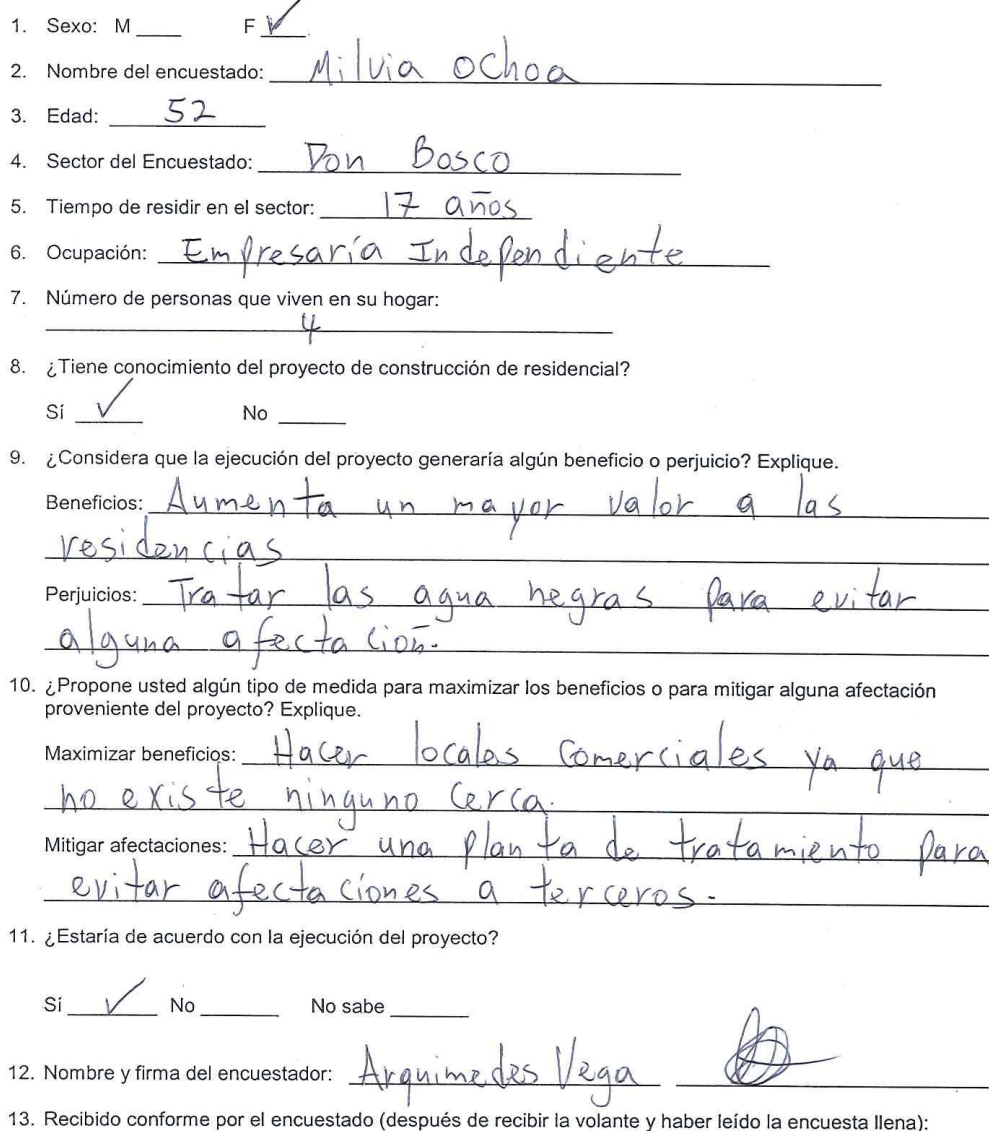 1. Sexo: M ____ F ✓
2. Nombre del encuestado: Milvia Ochoa
3. Edad: 52
4. Sector del Encuestado: Don Bosco
5. Tiempo de residir en el sector: 17 años
6. Ocupación: Empresaría Independiente
7. Número de personas que viven en su hogar:
4
8. ¿Tiene conocimiento del proyecto de construcción de residencial?
Sí ✓ No ____
9. ¿Considera que la ejecución del proyecto generaría algún beneficio o perjuicio? Explique.
Beneficios: Aumenta un mayor valor a las
residencias
Perjuicios: Tratar las agua negras para evitar
alguna afectación.
10. ¿Propone usted algún tipo de medida para maximizar los beneficios o para mitigar alguna afectación
proveniente del proyecto? Explique.
Maximizar beneficios: Hacer locales comerciales ya que
no existe ninguno cerca.
Mitigar afectaciones: Hacer una planta de tratamiento para
evitar afectaciones a terceros.
11. ¿Estaría de acuerdo con la ejecución del proyecto?
Sí ✓ No ____ No sabe ____
12. Nombre y firma del encuestador: Arquimedes Vega
13. Recibido conforme por el encuestado (después de recibir la volante y haber leído la encuesta llena):